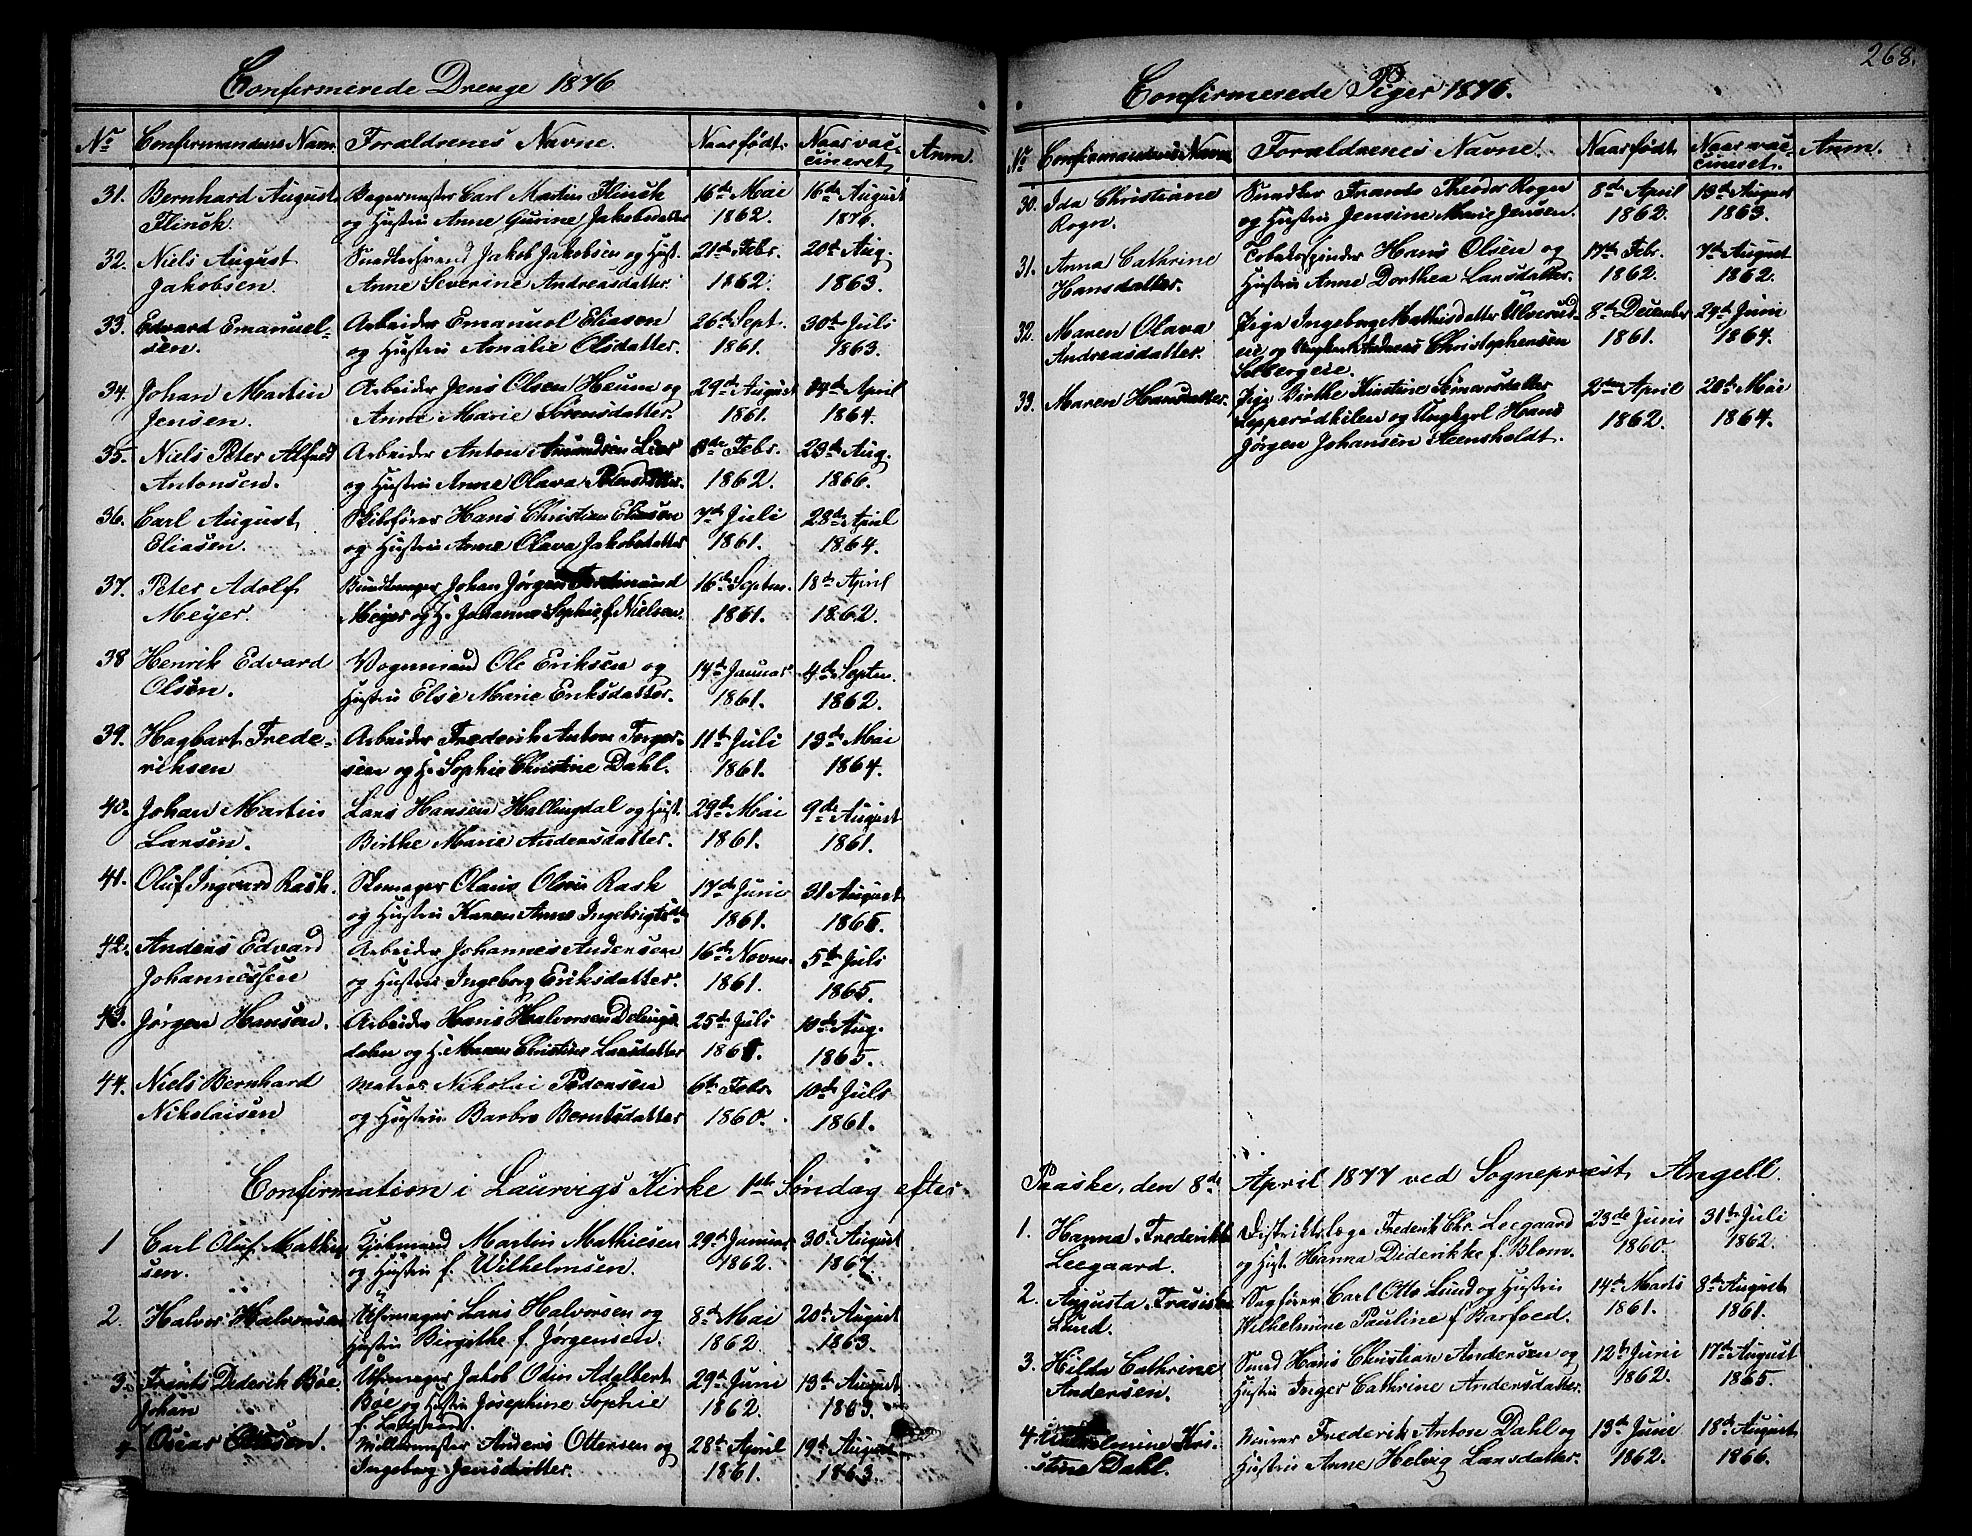 268.
Confirmerede Drenge 1876
No Confirmandens Navn. Forældrenes Navne. Naar født. Naar vac-
cineret. Anm.
31. Bernhard August Bagermester Carl Martin Flinck 16de Mai 16de August
Flinck. og Hustru Anne Gurine Jakobsdatter 1862. 1876.
32. Niels August Jakob Jakobsen og Hust. 21de Febr. 20de Aug.
Jakobsen. Anne Severine Andreasdatter. 1862. 1863.
33. Edvard Emanuel- Arbeider Emanuel Eliasen 26de Sept. 30te Juli
sen. og Hustru Amalie Olsdatter. 1861. 1863.
34. Johan Martin Arbeider Jens Olsen Heum og 29de August 14de April
Jensen. Anne Marie Sørensdatter. 1861. 1864.
35. Niels Peter Alfred Arbeider Anton Amundsen Febr. 23de Aug.
Antonsen. og Hustru Anne Olava 1862. 1866.
36. Carl August Skibsfører Hans Christian Eliasen 7de Juli 28de April
Eliasen. og Hustru Anne Olava Jakobsdatter 1861. 1864.
37. Peter Adolf Bundtmager Johan Jørgen Ferdinand 16de Septbr. 18de April
Meyer. Meyer og H. Johanne Sophie f. Nielsen. 1861. 1862.
38 Henrik Edvard Vognmand Ole Eriksen og 14de Januar 4de Septbr.
Olsen. Hustru Else Marie Eriksdatter. 1861. 1862.
39. Hagbart Frede- Arbeider Frederik Anton Torger- 11te Juli 13de Mai
riksen sen og H. Sophie Christine Dahl. 1861. 1864.
40. Johan Martin Lars Hansen Hallingdal og Hust. 29de Mai 9de August
Larsen. Birthe Marie Andersdatter. 1861. 1861.
41. Oluf Ingvard Rask. Skomager Olaus Olsen Rask 17de Juni 31 August
og Hustru Karen Anne Ingebrigtsdtr 1861. 1865.
42. Anders Edvard Arbeider Johannes Andersen 16de Novbr. 5te Juli
Johannessen og Hustru Ingeborg Eriksdatter. 1861. 1865.
43. Jørgen Hansen. Arbeider Hans Halvorsen 25de Juli 10de Aug.
dalen og H. Maren Christine Larsdatter 1861. 1865.
44. Niels Bernhard Matros Nikolai Pedersen 6te Febr. 10de Juli
Nikolaisen og Hustru Barbro Berntsdatter 1860. 1861.
Confirmation i Laurvigs Kirke 1ste Søndag efter
1 Carl Oluf Mathie- Kjøbmand Martin Mathiesen 29de Januar 30. August
sen. og Hustru f. Wilhelmsen. 1862. 1867.
2. Halvor Halvorsen Uhrmager Lars Halvorsen og 8de Mai 20de August
Hustru Birgithe f. Jørgensen. 1862. 1863.
3. Frants Diderik Bøe. Uhrmager Jakob Odin Adelbert 29de Juni 13de August
Johan Bøe og Hustru Josephine Sophie 1862. 1863.
4. Oscar Møllermester Anders Ottersen og 28de April 19de August
Ingeborg Jensdatter. 1861. 1863.
Confirmerede Piger 1876.
No Confirmandens Navn Forældrenes Navne. Naar født. Naar vac-
cineret. Anm.
30. Ida Christiane Snedker Frants Theodor Rogn 8de April 13de August
Rogn. og Hustru Jensine Marie Jensen. 1862. 1863.
31. Anna Cathrine Tobakspinder Hans Olsen og 17de Febr. 7de August
Hansdatter. Hustru Anne Dorthea Larsdatter. 1862. 1862.
32. Maren Olava Pige Ingeborg Mathisdatter 8de December 24de Juni
Andreasdatter. eie og Ungkarl Andreas Christophersen 1861. 1864.
Solbergeie.
33. Maren Hansdatter. Pige Birthe Kirstine 2den April 20de Mai
og Ungkarl Hans 1862. 1864.
Jørgen Johansen
Paaske, den 8de April 1877 ved Sognepræst Angell.
1. Hanna Frederikke Distriktslæge Frederik Chr. Leegaard 23de Juni 31te Juli
Leegaard. og Hust. Hanna Diderikke f. Blom. 1860. 1862.
2. Augusta Sagfører Carl Otto Lund og Hustru 14de Marts 8de August
Lund. Wilhelmine Pauline f. Barfoed. 1861. 1861.
3. Hilda Cathrine Smed Hans Christian Andersen og 12te Juni 17de August
Andersen. Hustru Inger Cathrine Andersdatter. 1862. 1865.
4. Wilhelmine Kri- Murer Frederik Anton Dahl og 13de Juni 18de August
stine Dahl. Hustru Anne Helvig Larsdatter. 1862. 1866.